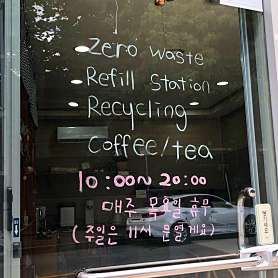 zero waste
Refill Station
Recycling
coffee/tea
10:00~20:00
매주 목요일 휴무
(주일은 11시 문열게요)